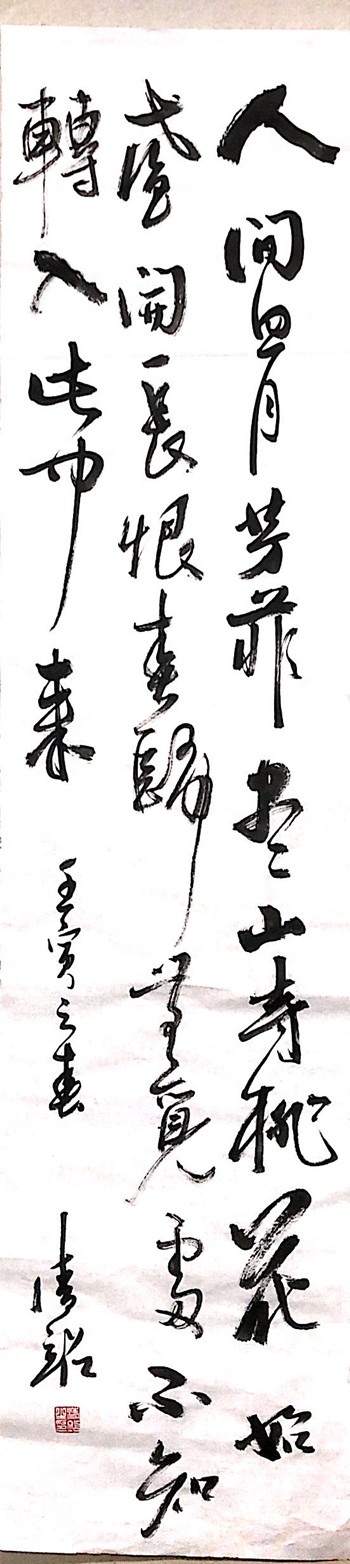 人間四月芳菲尽山寺桃花始
盛開長恨春歸無覓處不知
轉入此中來
壬寅之春 清